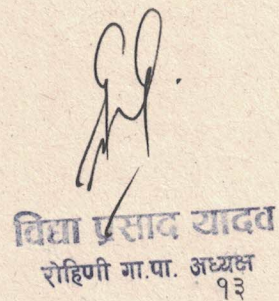 विद्या प्रसाद यादव
रोहिणी गा.पा. अध्यक्ष
१३